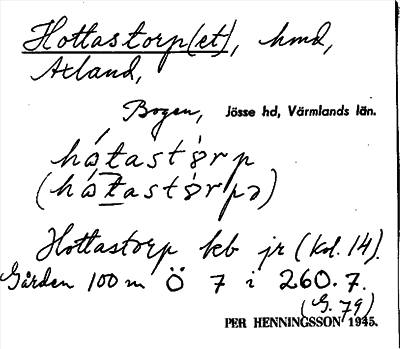 Hottastorp(et), hmd,
Axland,
Bogen, Jösse hd, Värmlands län.
hǻtastò̀rp
(hǻtastò̀rpə)
Hottastorp kb jr (kol. 14).
Gården 100 m Ö 7 i 260.7.
(G. 79)
PER HENNINGSSON 1945.